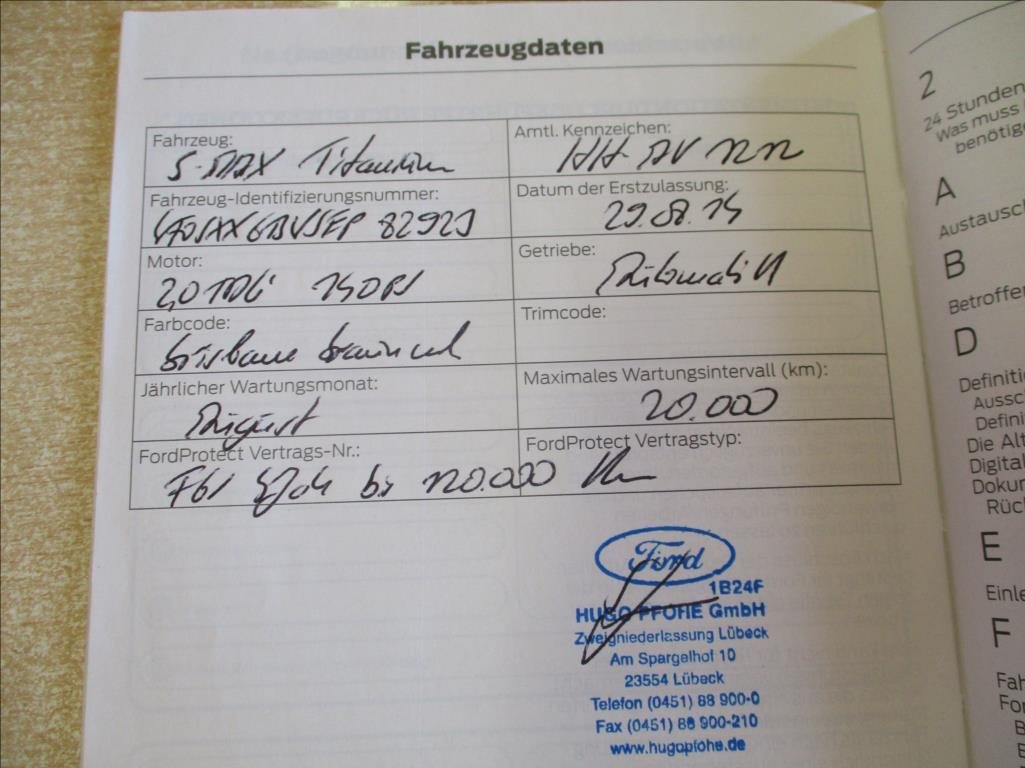 Fahrzeugdaten
Fahrzeug:
S-MAX Titanium
Amtl. Kennzeichen:
HH-AV
Fahrzeug-Identifizierungsnummer:
82929
Datum der Erstzulassung:
29.08.14
Motor:
2,0 TDCi 140 PS
Getriebe:
Automatik
Farbcode:
brisbane braun met
Trimcode:
Jährlicher Wartungsmonat:
August
Maximales Wartungsintervall (km):
20.000
FordProtect Vertrags-Nr.:
FordProtect Vertragstyp:
bis 120.000 Km
Ford
1B24F
HUGO PFOHE GmbH
Zweigniederlassung Lübeck
Am Spargelhof 10
23554 Lübeck
Telefon (0451) 88 900-0
Fax (0451) 88 900-210
www.hugopfohe.de
2
24 Stunden
Was muss
benötig
A
Austausch
B
Betroffe
D
Definiti
Aussc
Defini
Die Alt
Digital
Dokur
Rüc
E
Einle
F
Fah
For
B